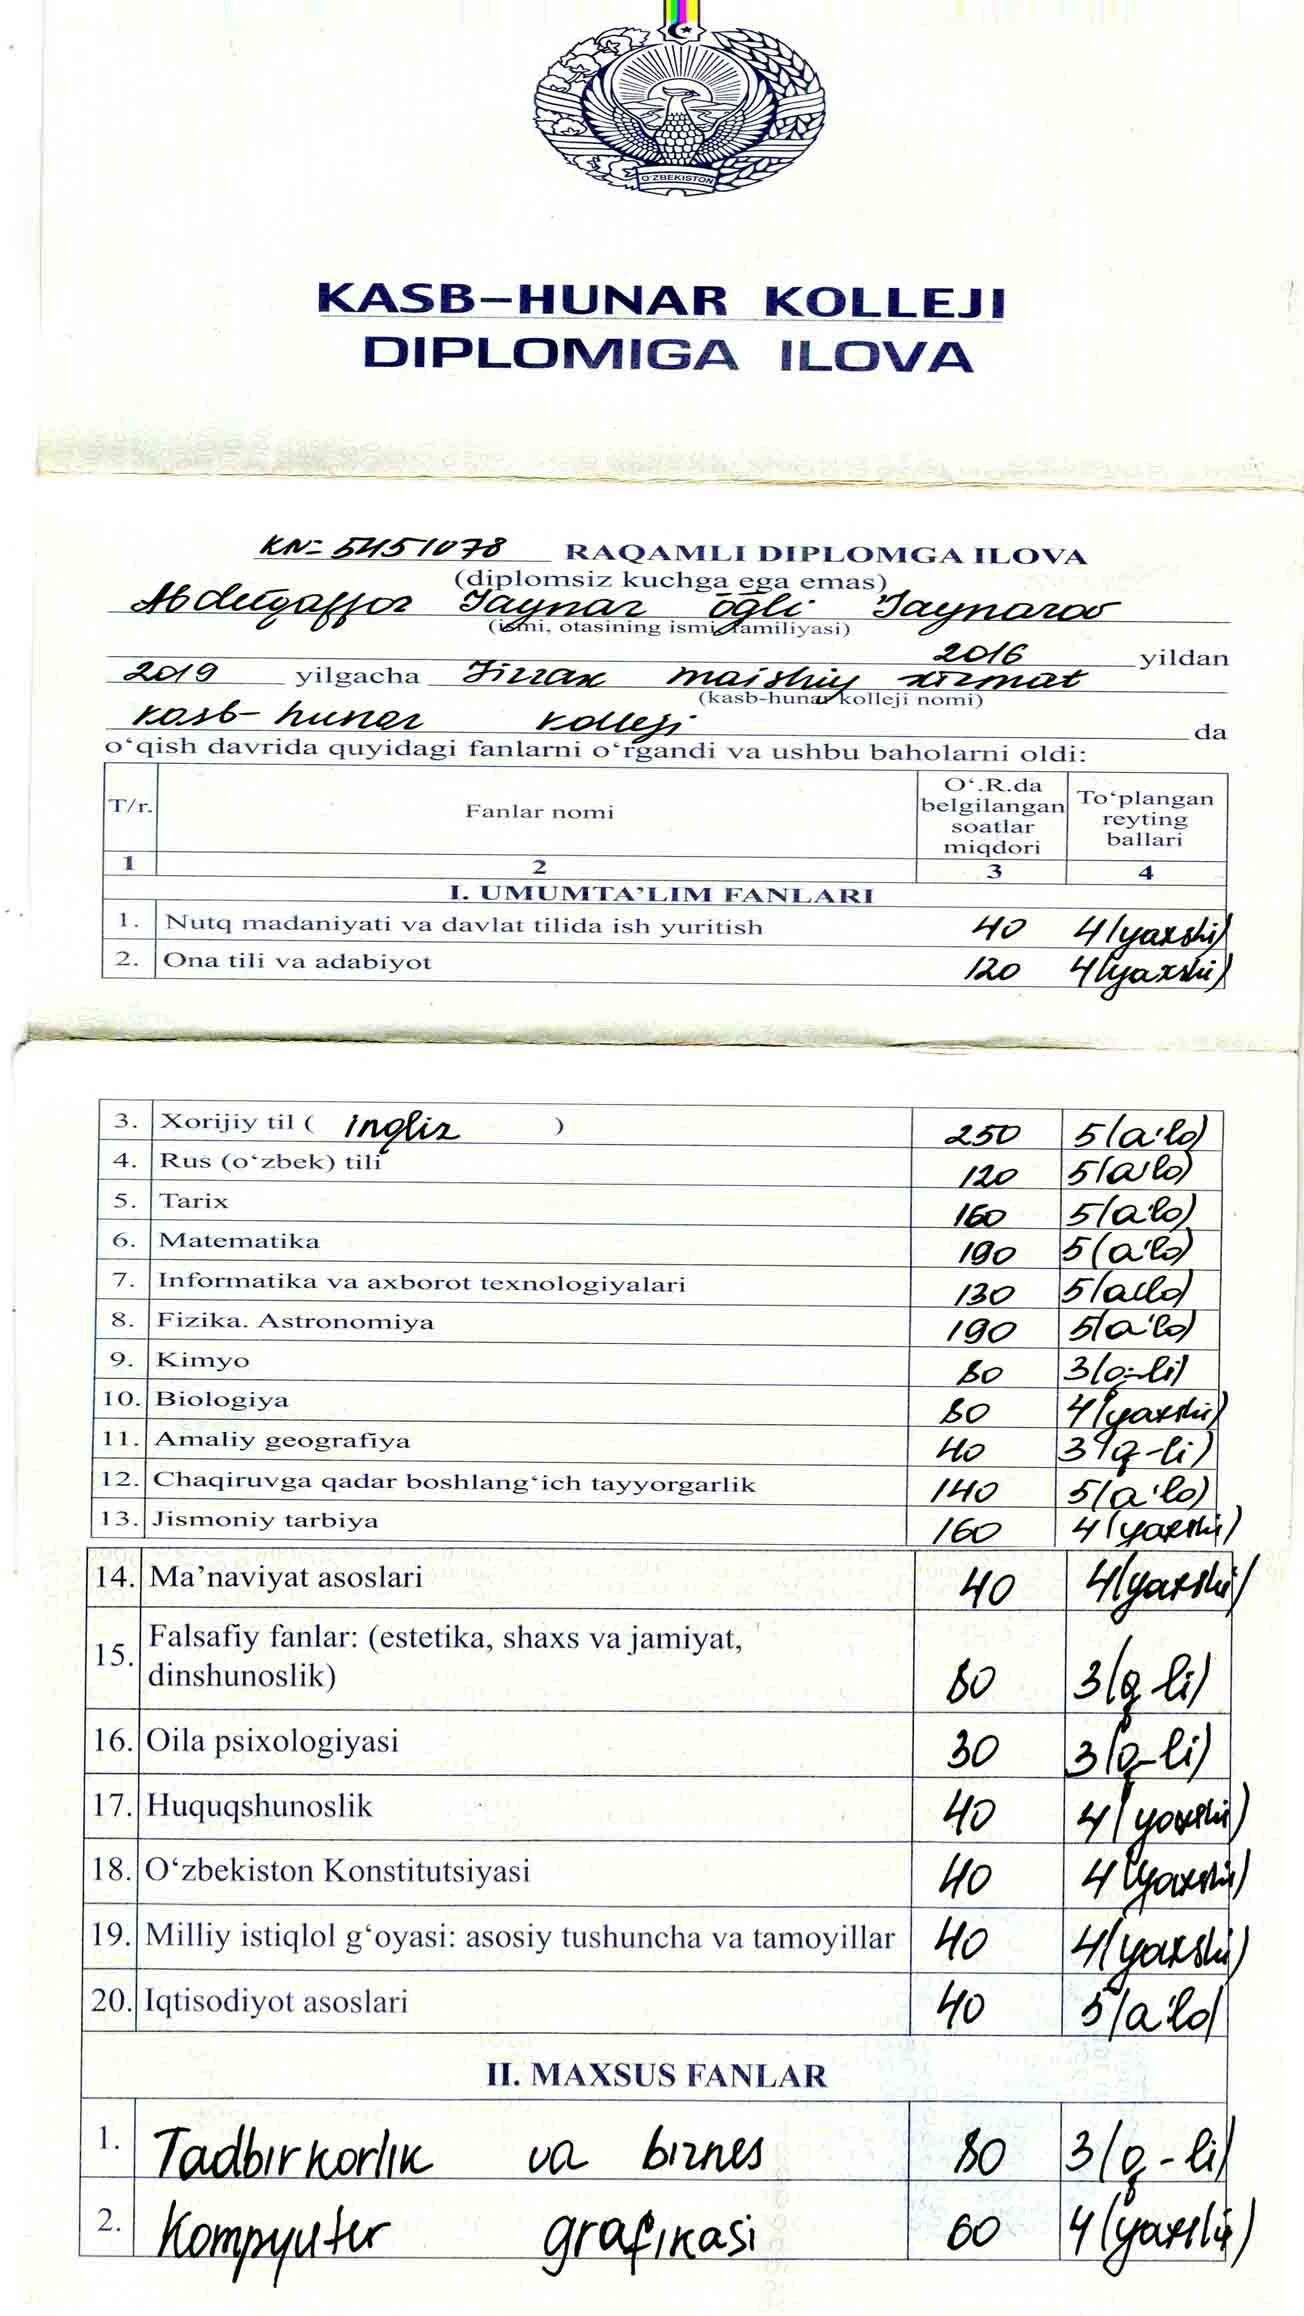 O'ZBEKISTON
KASB–HUNAR KOLLEJI
DIPLOMIGA ILOVA
KN= 5451078 RAQAMLI DIPLOMGA ILOVA
(diplomsiz kuchga ega emas)
Abdugaffor Taynar o'g'li Taynarov
(ismi, otasining ismi, familiyasi)
2016 yildan
2019 yilgacha Jizzax maishiy xizmat
(kasb-hunar kolleji nomi)
kasb-hunar kolleji da
o'qish davrida quyidagi fanlarni o'rgandi va ushbu baholarni oldi:
T/r. Fanlar nomi O'.R.da belgilangan soatlar miqdori To'plangan reyting ballari
1 2 3 4
I. UMUMTA'LIM FANLARI
1. Nutq madaniyati va davlat tilida ish yuritish 40 4(yaxshi)
2. Ona tili va adabiyot 120 4(yaxshi)
3. Xorijiy til ( ingliz ) 250 5(a'lo)
4. Rus (o'zbek) tili 120 5(a'lo)
5. Tarix 160 5(a'lo)
6. Matematika 190 5(a'lo)
7. Informatika va axborot texnologiyalari 130 5(a'lo)
8. Fizika. Astronomiya 190 5(a'lo)
9. Kimyo 80 3(q-li)
10. Biologiya 80 4(yaxshi)
11. Amaliy geografiya 40 3(q-li)
12. Chaqiruvga qadar boshlang'ich tayyorgarlik 140 5(a'lo)
13. Jismoniy tarbiya 160 4(yaxshi)
14. Ma'naviyat asoslari 40 4(yaxshi)
15. Falsafiy fanlar: (estetika, shaxs va jamiyat,
dinshunoslik) 80 3(q-li)
16. Oila psixologiyasi 30 3(q-li)
17. Huquqshunoslik 40 4(yaxshi)
18. O'zbekiston Konstitutsiyasi 40 4(yaxshi)
19. Milliy istiqlol g'oyasi: asosiy tushuncha va tamoyillar 40 4(yaxshi)
20. Iqtisodiyot asoslari 40 5(a'lo)
II. MAXSUS FANLAR
1. Tadbirkorlik va biznes 80 3(q-li)
2. Kompyuter grafikasi 60 4(yaxshi)